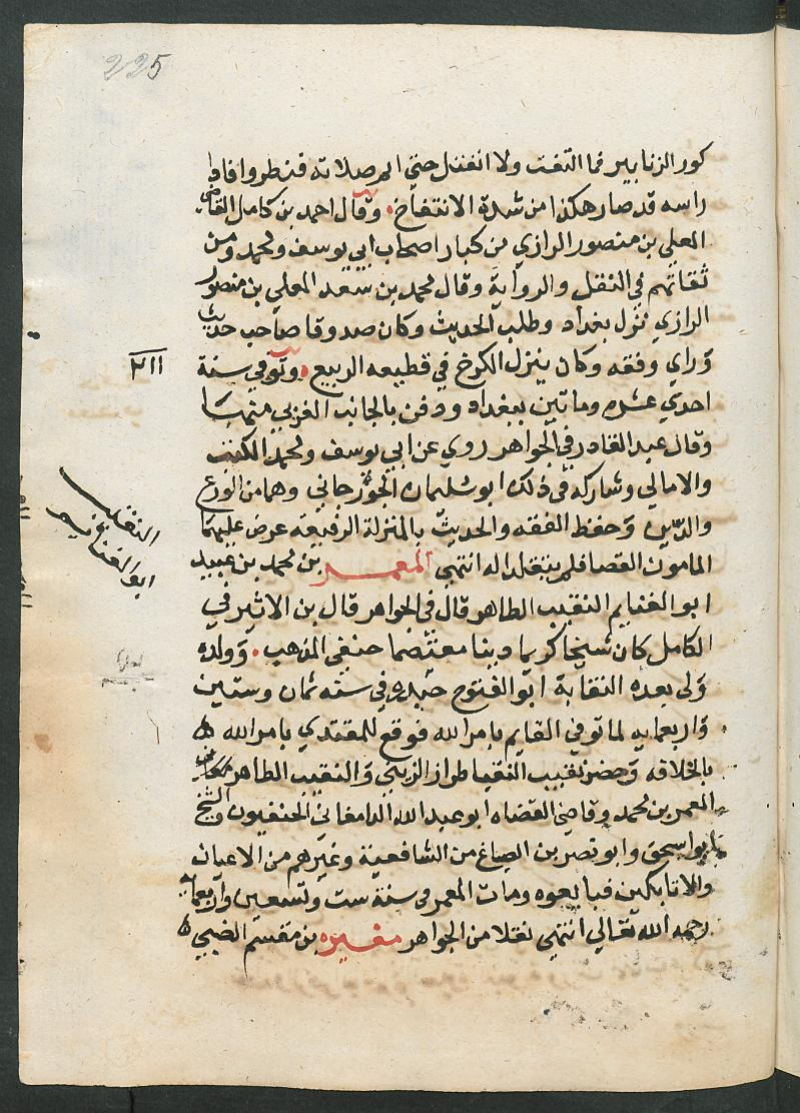 225
كور الزنابير فما التفت ولا انفتل حتي اتم صلاته فنظروا فاذا
راسه قد صار هكذا من شدة الانتفاخ وقال احمد بن كامل القاضي
المعلي بن منصور الرازي من كبار اصحاب ابي يوسف ومحمد ومن
ثقاتهم في النقل والرواية وقال محمد بن سعد المعلي بن منصور
الرازي نزل بغداد وطلب الحديث وكان صدوقا صاحب حديث
وراي وفقه وكان ينزل الكرخ في قطيعه الربيع وتوفي سنة
٢١١
احدي عشره وماتين ببغداد ودفن بالجانب الغربي منها
وقال عبد القادر في الجواهر روي عن ابي يوسف ومحمد الكتب
والامالي وشاركه في ذلك ابو سليمان الجوزجاني وهما من الورع
والدين وحفظ الفقه والحديث بالمنزلة الرفيعه عرض عليهما
المامون القضا فلم يتقلدا له انتهي المعمر بن محمد بن عبيد
النقيب
ابو الغنايم
ابو الغنايم النقيب الطاهر قال في الجواهر قال بن الاثير في
الكامل كان شيخا كريما دينا معتضما حنفي المذهب وولده
ولي بعده النقابة ابو الفتوح حيدره في سنه ثمان وستين
واربعمايه لما توفي القايم بامر الله فوقع للمقتدي بامر الله
بالخلافه وحضر نقيب النقبا طراز الزينبي والنقيب الطاهر
المعمر بن محمد وقاضي القضاه ابو عبد الله الدامغاني الحنفيون والشيخ
ابو اسحق وابو نصر بن الصباغ من الشافعية وغيرهم من الاعيان
والاتابكين فبايعوه ومات المعمر في سنة ست وتسعين واربعمايه
رحمه الله تعالي انتهي نقلا من الجواهر مغيره بن مقسم الضبي